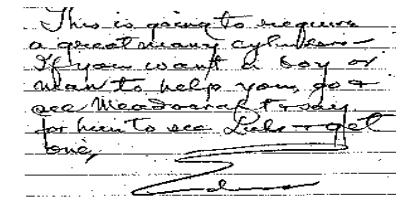 This is going to require
a great many cylinders –
If you want a boy or
man to help you, go &
see Meadowcraft & say
for him to see Luhr & get
one,